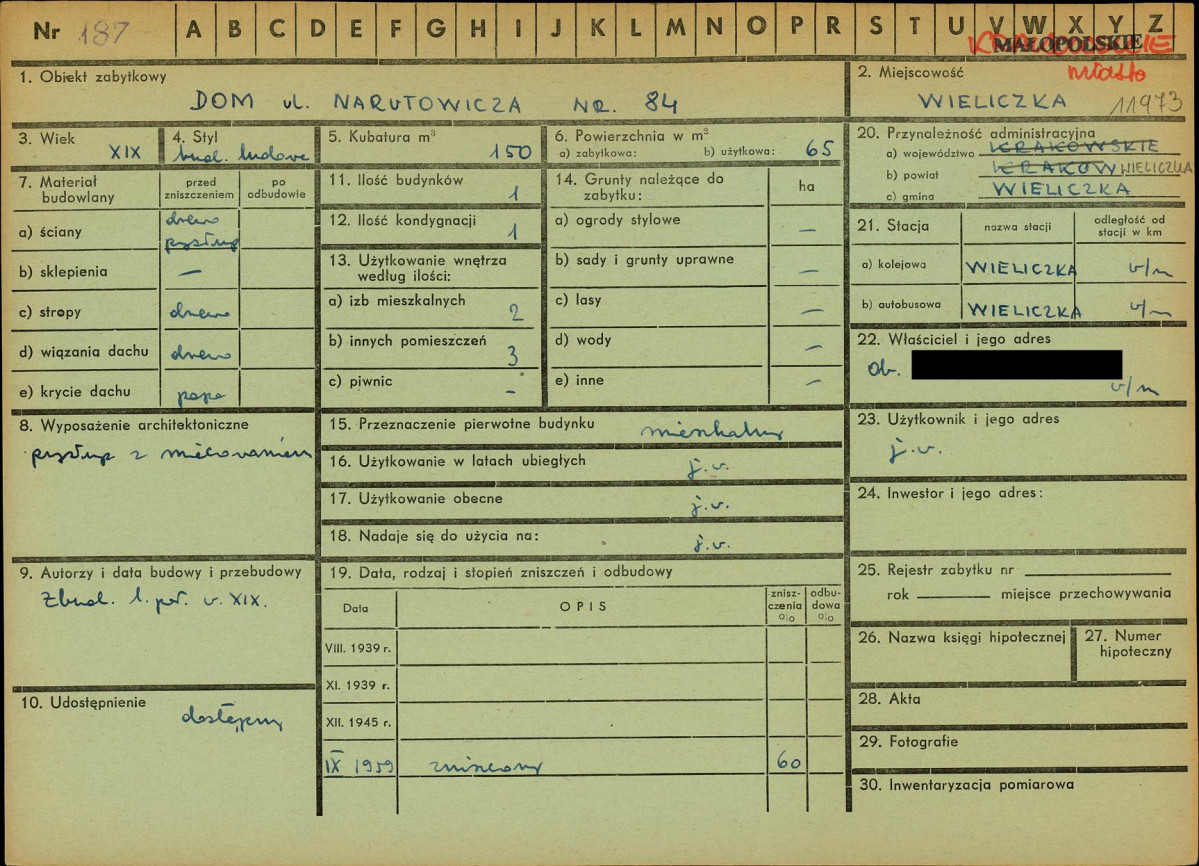 Nr 187 A B C D E F G H I J K L M N O P R S T U V W X Y Z
KRAKOWSKIE
MAŁOPOLSKIE
miasto
1. Obiekt zabytkowy
DOM ul. NARUTOWICZA NR. 84
2. Miejscowość
WIELICZKA 11973
3. Wiek
XIX
4. Styl
bud. ludowe
5. Kubatura m³
150
6. Powierzchnia w m²
a) zabytkowa: b) użytkowa: 65
20. Przynależność administracyjna
a) województwo KRAKOWSKIE
b) powiat KRAKÓW WIELICZKA
c) gmina WIELICZKA
7. Materiał budowlany
przed zniszczeniem
po odbudowie
a) ściany drewo przysłup
b) sklepienia —
c) stropy drewno
d) wiązania dachu drewno
e) krycie dachu papa
11. Ilość budynków
1
12. Ilość kondygnacji
1
13. Użytkowanie wnętrza
według ilości:
a) izb mieszkalnych 2
b) innych pomieszczeń 3
c) piwnic –
14. Grunty należące do
zabytku:
ha
a) ogrody stylowe —
b) sady i grunty uprawne —
c) lasy —
d) wody —
e) inne —
21. Stacja
nazwa stacji
odległość od
stacji w km
a) kolejowa WIELICZKA v/m
b) autobusowa WIELICZKA v/m
22. Właściciel i jego adres
ob.
v/m
8. Wyposażenie architektoniczne
przysłup z mieczowaniem
15. Przeznaczenie pierwotne budynku mieszkalny
16. Użytkowanie w latach ubiegłych j.v.
17. Użytkowanie obecne j.v.
18. Nadaje się do użycia na: j.v.
23. Użytkownik i jego adres
j.v.
24. Inwestor i jego adres:
9. Autorzy i data budowy i przebudowy
Zbud. 1. poł. w. XIX.
19. Data, rodzaj i stopień zniszczeń i odbudowy
Data
OPIS
znisz-
czenia
%
odbu-
dowa
%
VIII. 1939 r.
XI. 1939 r.
XII. 1945 r.
IX 1959 zniszczony 60
10. Udostępnienie
dostępny
25. Rejestr zabytku nr
rok miejsce przechowywania
26. Nazwa księgi hipotecznej
27. Numer
hipoteczny
28. Akta
29. Fotografie
30. Inwentaryzacja pomiarowa